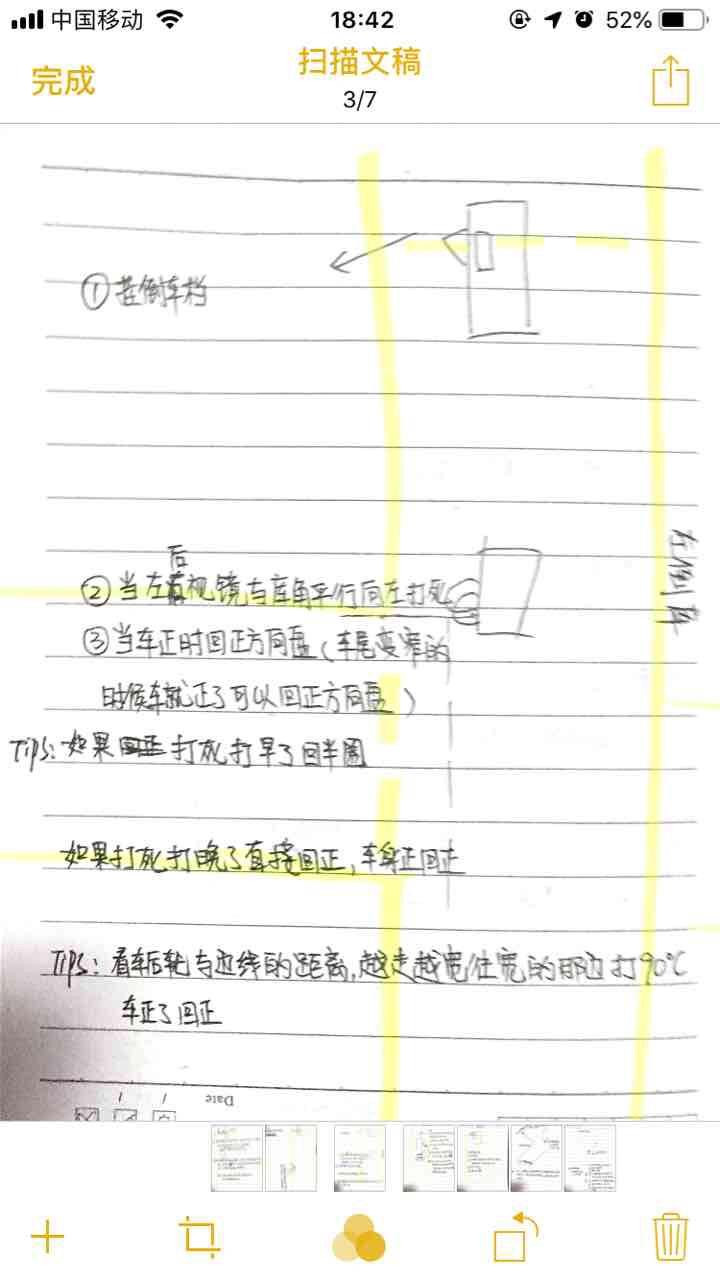 中国移动
18:42
52%
完成
扫描文稿
3/7
①挂倒车档
后
②当左视镜与库角平行向左打死
左倒库
③当车正时回正方向盘(车尾变窄的
时候车就正了可以回正方向盘)
Tips:如果打死打早了回半圈
如果打死打晚了直接回正,车身正回正
Tips:看车后轮与边线的距离,越走越宽往宽的那边打90°C
车正了回正
Date